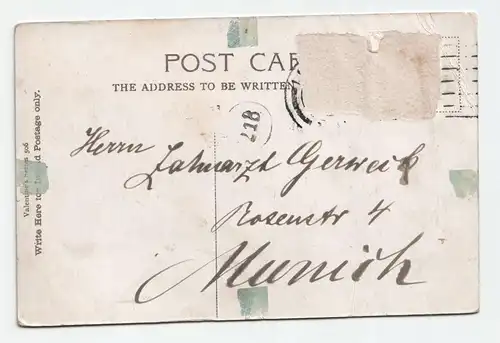 POST CAR
THE ADDRESS TO BE WRITTEN
218
Herrn Zahnarzt Gerweck
Rosenstr 4
Munich
Valentine's Series 506
Write Here for Inland Postage only.